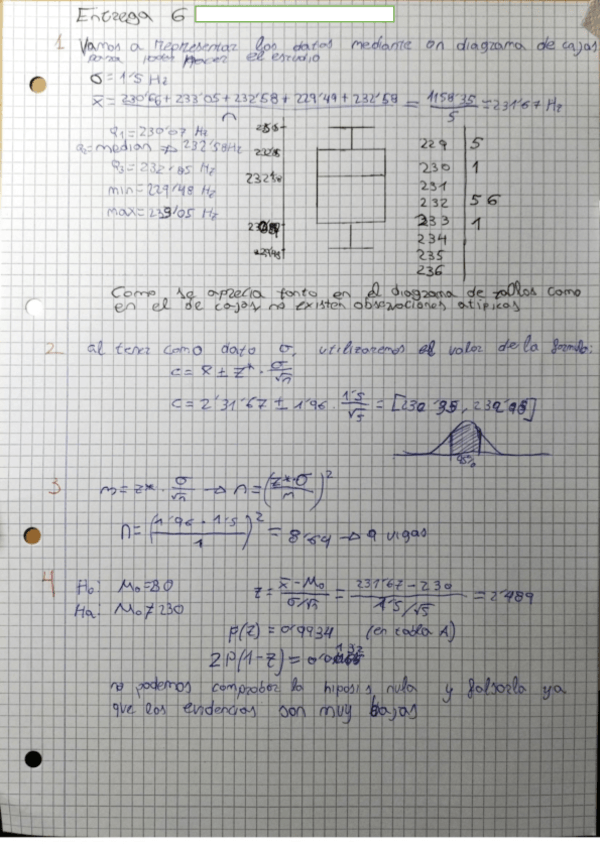 Entrega 6
1 Vamos a representar los datos mediante un diagrama de cajas
para poder hacer el estudio
σ = 1'5 Hz
x̄ = 230'66 + 233'05 + 232'58 + 229'49 + 232'58 / n = 1158'35 / 5 = 231'67 Hz
q1 = 230'07 Hz
q2 = median → 232'58 Hz
q3 = 232'85 Hz
min = 229'48 Hz
max = 233'05 Hz
229 | 5
230 | 1
231 |
232 | 5 6
233 | 1
234 |
235 |
236 |
Como se aprecia tanto en el diagrama de tallos como
en el de cajas no existen observaciones atipicas
2 al tener como dato σ, utilizaremos el valor de la formula:
c = x̄ ± z* · σ/√n
c = 2'31'67 ± 1'96 · 1'5/√5 = [230'35, 232'98]
95%
3 m = z* · σ/√n → n = (z*·σ / m)²
n = (1'96 · 1'5 / 1)² = 8'64 → 9 vigas
4 H₀: M₀ = 80
Ha: M₀ ≠ 230
z = x̄ - M₀ / σ/√n = 231'67 - 230 / 1'5/√5 = 2'489
p(z) = 0'9934 (en tabla A)
2P(1-z) =
no podemos comprobar la hiposis nula y falsarla ya
que las evidencias son muy bajas